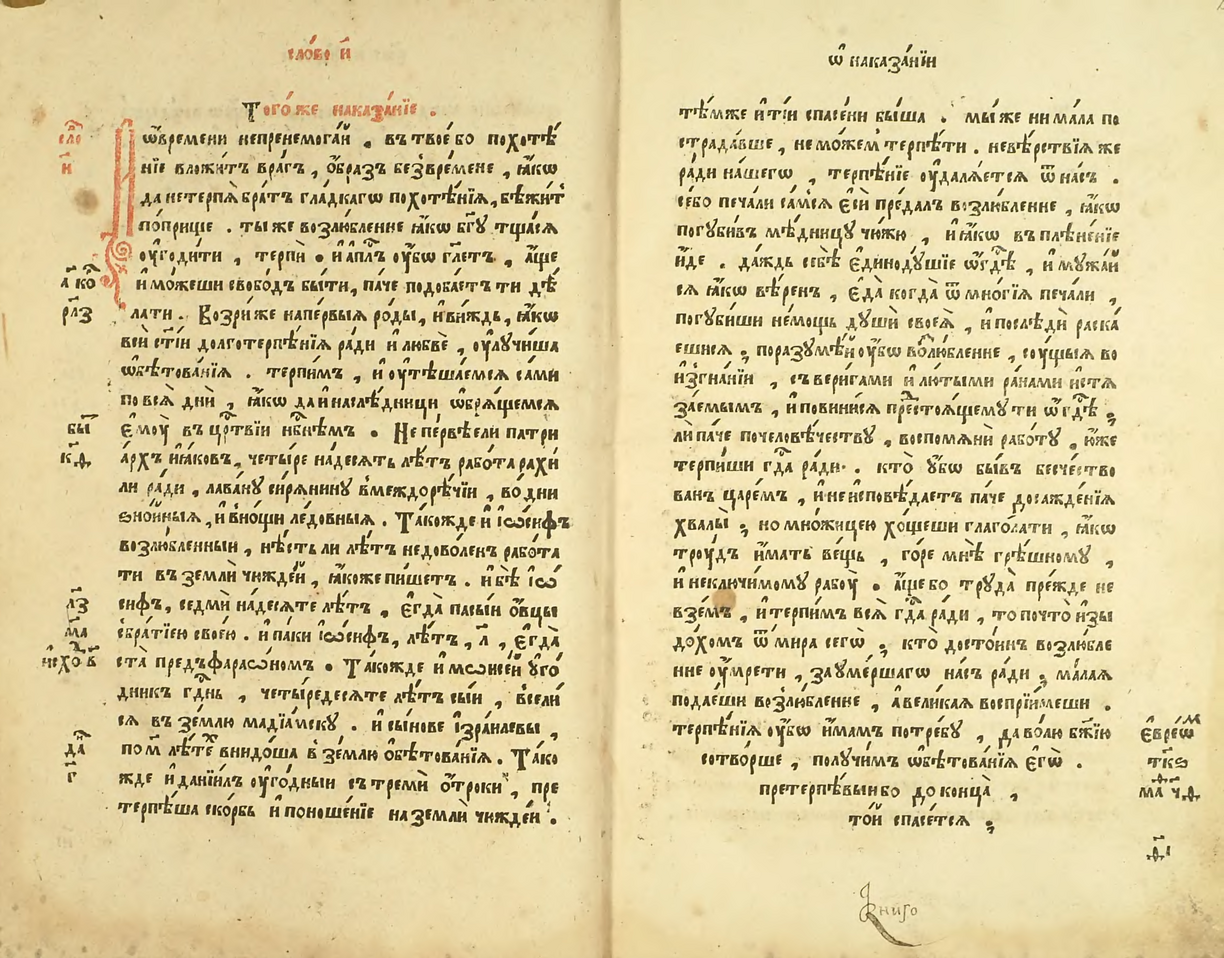 сло́во и҃
Того́же наказа́нїе .
сло́
и҃
П ѡ҆времени непренемога́й . въ твое́ бо похотѣ́
нїе вложи́тъ вра́гъ , ѻ҆́бразъ безвре́мене , ꙗ҆́кѡ
да нетерпѧ̀ бра́тъ гла́дкагѡ похотѣ́нїѧ , бѣжи́тъ
по́прище . ты́ же возлю́бленне ꙗ҆́кѡ бг҃ꙋ тща́сѧ
оу҆годи́ти , терпѝ . и҆ а҆пⷭ҇лъ оу҆́бѡ гл҃етъ , а҆́ще
и҆ мо́жеши свобо́дъ бы́ти , па́че подоба́етъ ти дѣ́
а҃ ко
рл҃з
лати . Возри́ же напе́рвыѧ ро́ды , и҆ ви́ждь , ꙗ҆́кѡ
всѝ ст҃і́и долготерпѣ́нїѧ ра́ди и҆ любвѐ , оу҆лꙋчи́ша
ѡ҆бѣтова́нїѧ . терпи́мъ , и҆ оу҆тѣша́емсѧ са́ми
по всѧ̀ днѝ , ꙗ҆́кѡ да и҆ наслѣ́дницы ѡ҆брѧ́щемсѧ
є҆моу̀ въ црⷭ҇твїи нбⷭ҇нѣмъ . Не пе́рвѣе ли патри
а́рхъ и҆ꙗ́ковъ , четы́ре на́десѧть лѣ́тъ рабо́та рахи́
бы̀
к҃ѳ
ли ра́ди , лава́нꙋ си́рѧнинꙋ в междорѣ́чїи , во́ дни
зно́йныѧ , и҆ в но́щи ле́довныѧ . Та́кожде и҆ і҆ѡ́сифъ
возлю́бленныи , нѣ́сть ли лѣ́тъ недово́ленъ рабо́та
ти въ землѝ чꙋжде́й , ꙗ҆́коже пи́шетъ . и҆ бѣ̀ і҆ѡ́
сифъ , седмѝ на́десѧте лѣ́тъ , є҆гда̀ пасы́и ѻ҆́вцы
л҃з
с бра́тїею свое́ю . и҆ па́ки і҆ѡ́сифъ , лѣ́тъ , л҃ , є҆гда̀
м҃а
ста̀ предъ фараѡ́номъ . Та́кожде и҆ мѡисе́й оу҆го́
и҆схо́ в҃
дникъ гдⷭ҇нь , четы́редесѧте лѣ́тъ сы́и , всели́
сѧ въ зе́млю мадїа́мскꙋ . и҆ сы́нове і҆зра́илевы ,
по м҃ лѣ́тѣхъ внидо́ша в зе́млю ѻ҆бѣтова́нїѧ . Та́ко
да
г҃
жде и҆ данїи́лъ оу҆го́дныи с тремѝ ѻ҆́троки , пре
терпѣ́ша ско́рбь и҆ поноше́нїе на землѝ чꙋжде́й .
ѡ҆ наказа́нїи
тѣ́мже и҆ ті́и спасе́ни бы́ша . мы́ же ни ма́ла по
страда́вше , не мо́жемъ терпѣ́ти . невѣ́рствїѧ же
ра́ди на́шегѡ , терпѣ́нїе оу҆далѧ́етсѧ ѿ на́съ .
се́бо печа́ли са́мсѧ є҆сѝ пре́далъ возлю́бленне , ꙗ҆́кѡ
погꙋби́въ мѣ́дницꙋ чю́жю , и҆ ꙗ҆́кѡ въ плѣне́нїе
и҆́де . да́ждь себѣ̀ є҆динодꙋ́шїе ѡ҆ гдⷭ҇ѣ , и҆ мꙋжа́й
сѧ ꙗ҆́кѡ вѣ́ренъ , є҆да̀ когда̀ ѿ мно́гїѧ печа́ли ,
погꙋби́ши не́мощь дꙋшѝ своеѧ̀ , и҆ послѣдѝ раска́
ешисѧ ; поразꙋмѣ́й оу҆́бѡ возлю́бленне , сꙋ́щыѧ во
и҆згна́нїи , съ вери́гами и҆ лю́тыми ра́нами и҆стѧ
за́емымъ , и҆ повини́сѧ престоѧ́щемꙋ ти ѡ҆ гдⷭ҇ѣ ;
ли па́че по человѣ́честву , воспомѧнѝ рабо́тꙋ , ю҆́же
терпи́ши гдⷭ҇а ра́ди . кто̀ ᲂу҆́бѡ бы́въ бесче́ство
ванъ царе́мъ , и҆ не и҆сповѣ́даетъ па́че досажде́нїѧ
хвалы̀ ; но мно́жицею хо́щеши глаго́лати , ꙗ҆́кѡ
трꙋ́дъ и҆́мать ве́щь , го́ре мнѣ̀ грѣ́шномꙋ ,
и҆ неключи́момꙋ рабоу̀ . а҆́ще бо трꙋда̀ пре́жде не
взе́мъ , и҆ те́рпимъ всѧ̀ гдⷭ҇а ра́ди , то почто̀ и҆зы
до́хомъ ѿ ми́ра сегѡ̀ ; кто̀ досто́инъ возлю́бле
нне оу҆мре́ти , за оу҆ме́ршаго на́съ ра́ди ; ма́лаѧ
подае́ши возлю́бленне , а҆ вели́каѧ воспрїе́млеши .
терпѣ́нїѧ оу҆́бѡ и҆́мамъ потре́бꙋ , да во́лю бж҃їю
є҆вре́ѡⷨ
сотво́рше , полꙋ́чимъ ѡ҆бѣтова́нїѧ є҆гѡ̀ .
тк҃ѕ
претерпѣ́выи бо до конца̀ ,
ма ч҃ѳ
то́й спасе́тсѧ ;